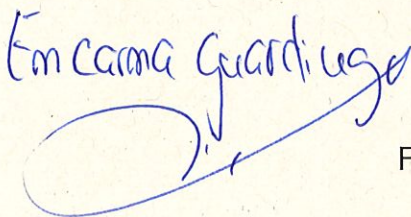 Encarna Guardiuga
F